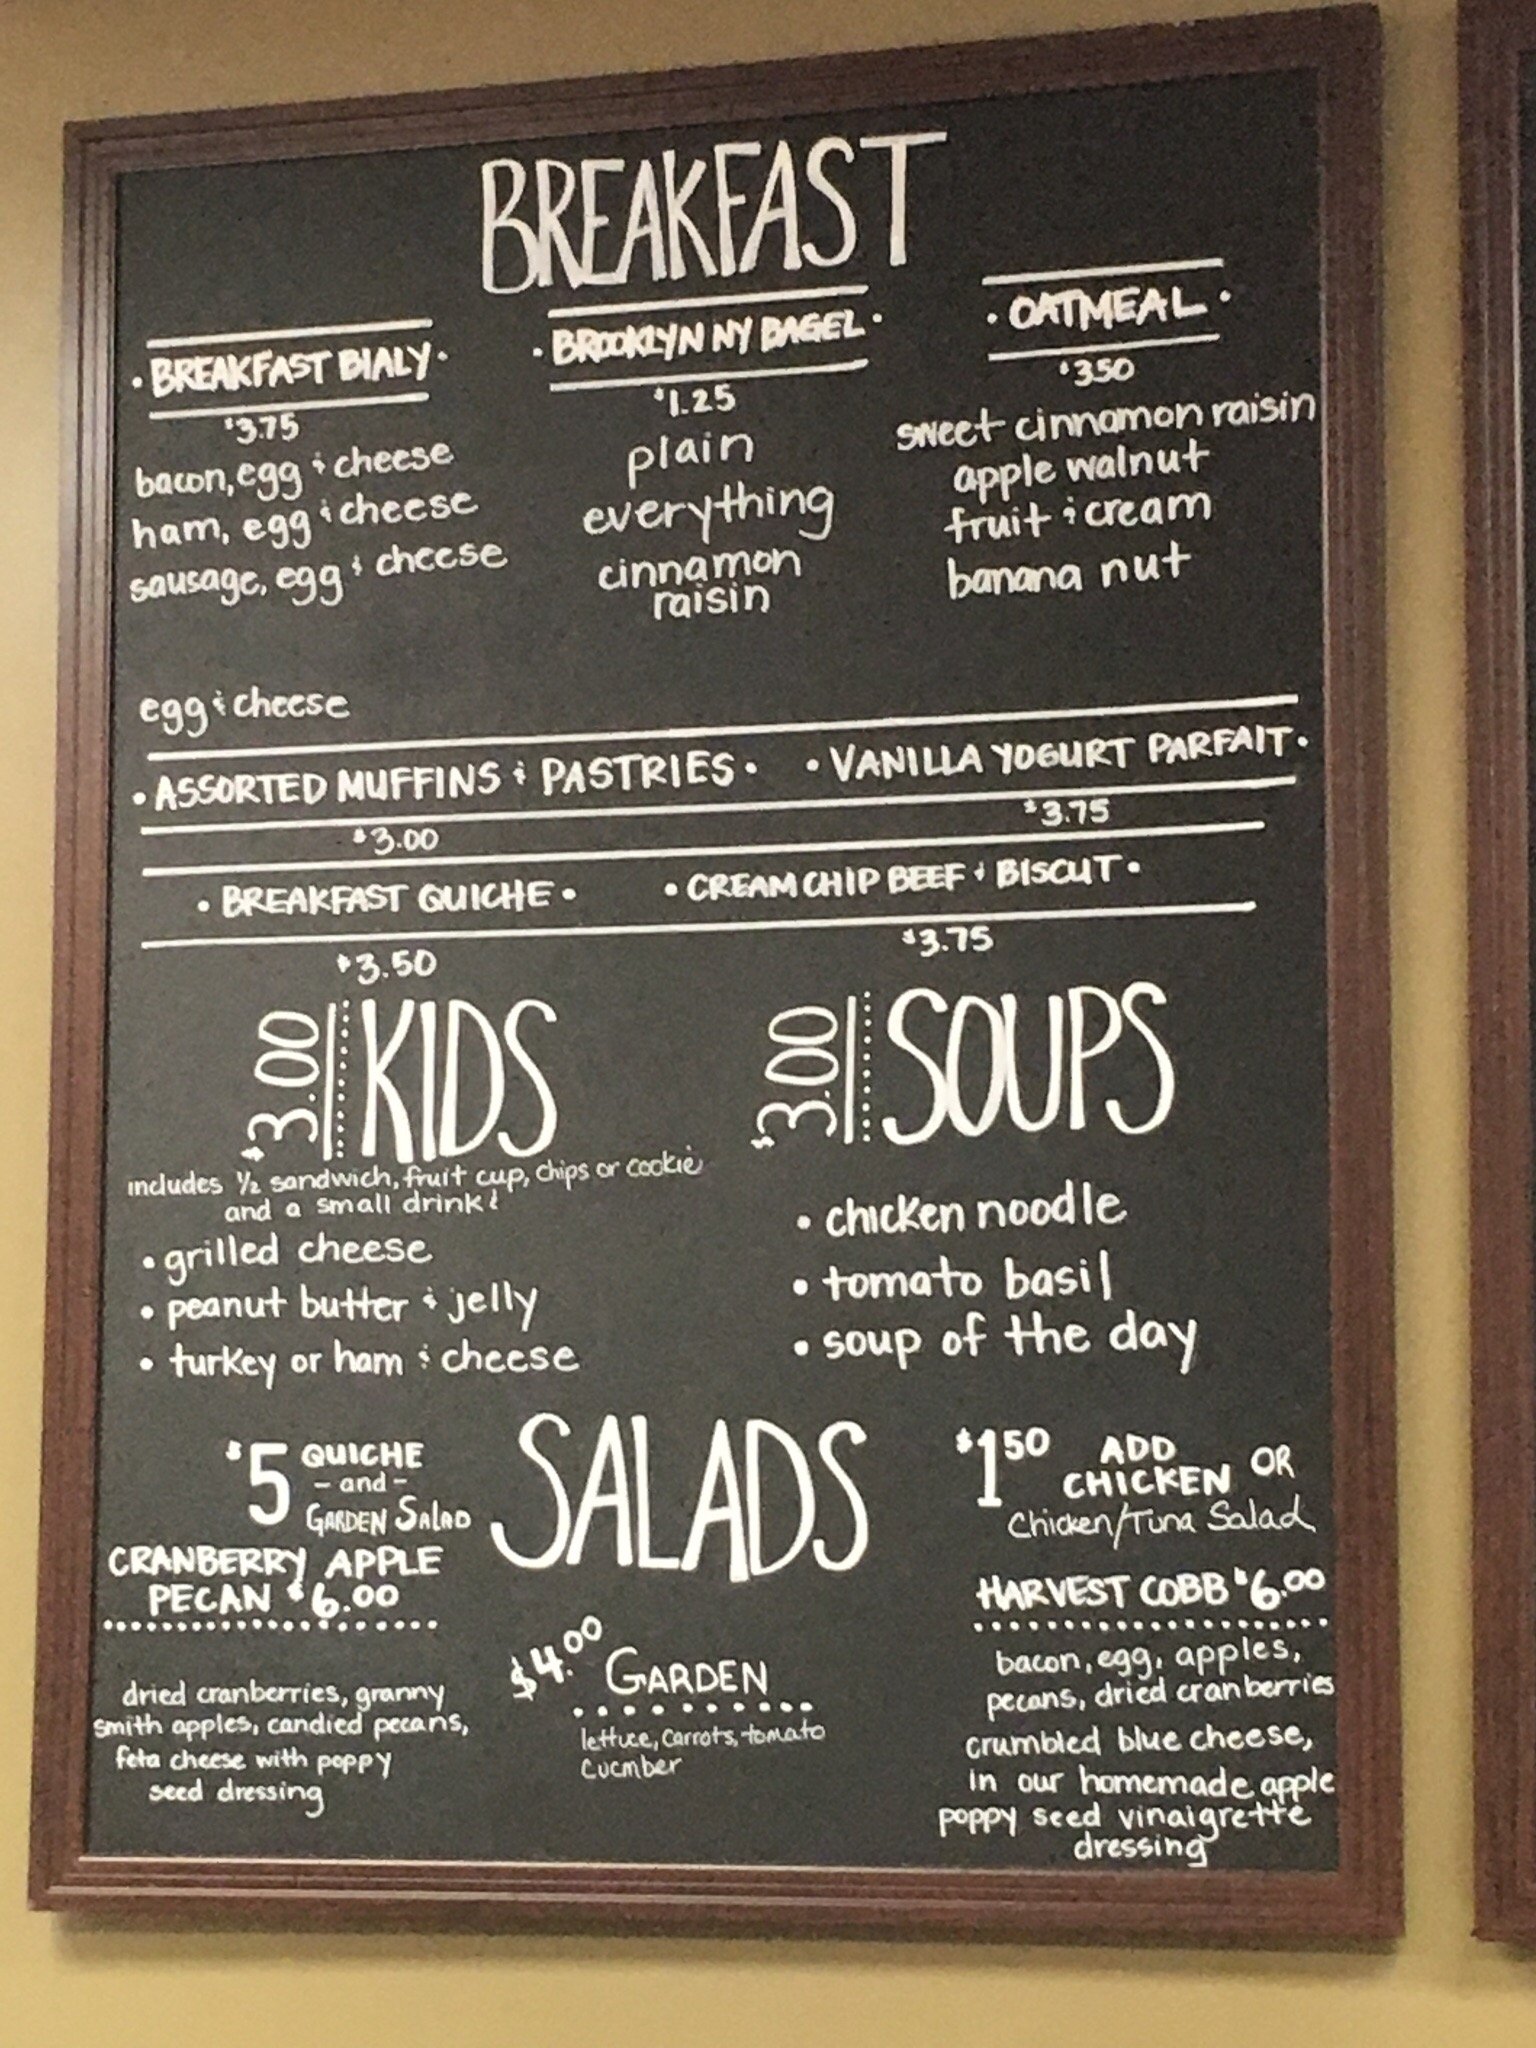 BREAKFAST
· BREAKFAST BIALY ·
$3.75
bacon, egg & cheese
ham, egg & cheese
sausage, egg & cheese
egg & cheese
· BROOKLYN NY BAGEL ·
$1.25
plain
everything
cinnamon
raisin
· OATMEAL ·
$350
sweet cinnamon raisin
apple walnut
fruit & cream
banana nut
· ASSORTED MUFFINS & PASTRIES ·
$3.00
· VANILLA YOGURT PARFAIT ·
$3.75
· BREAKFAST QUICHE ·
$3.50
· CREAM CHIP BEEF & BISCUT ·
$3.75
$3.00 KIDS
includes ½ sandwich, fruit cup, chips or cookie
and a small drink!
• grilled cheese
• peanut butter & jelly
• turkey or ham & cheese
$3.00 SOUPS
• chicken noodle
• tomato basil
• soup of the day
SALADS
$5 QUICHE
- and -
GARDEN SALAD
CRANBERRY APPLE
PECAN $6.00
dried cranberries, granny
smith apples, candied pecans,
feta cheese with poppy
seed dressing
$4.00 GARDEN
lettuce, carrots, tomato
cucmber
$1.50 ADD
CHICKEN OR
Chicken/Tuna Salad
HARVEST COBB $6.00
bacon, egg, apples,
pecans, dried cranberries
crumbled blue cheese,
in our homemade apple
poppy seed vinaigrette
dressing